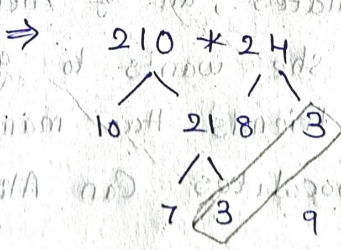 ⇒ 210 * 24
10 21 8 3
7 3 9